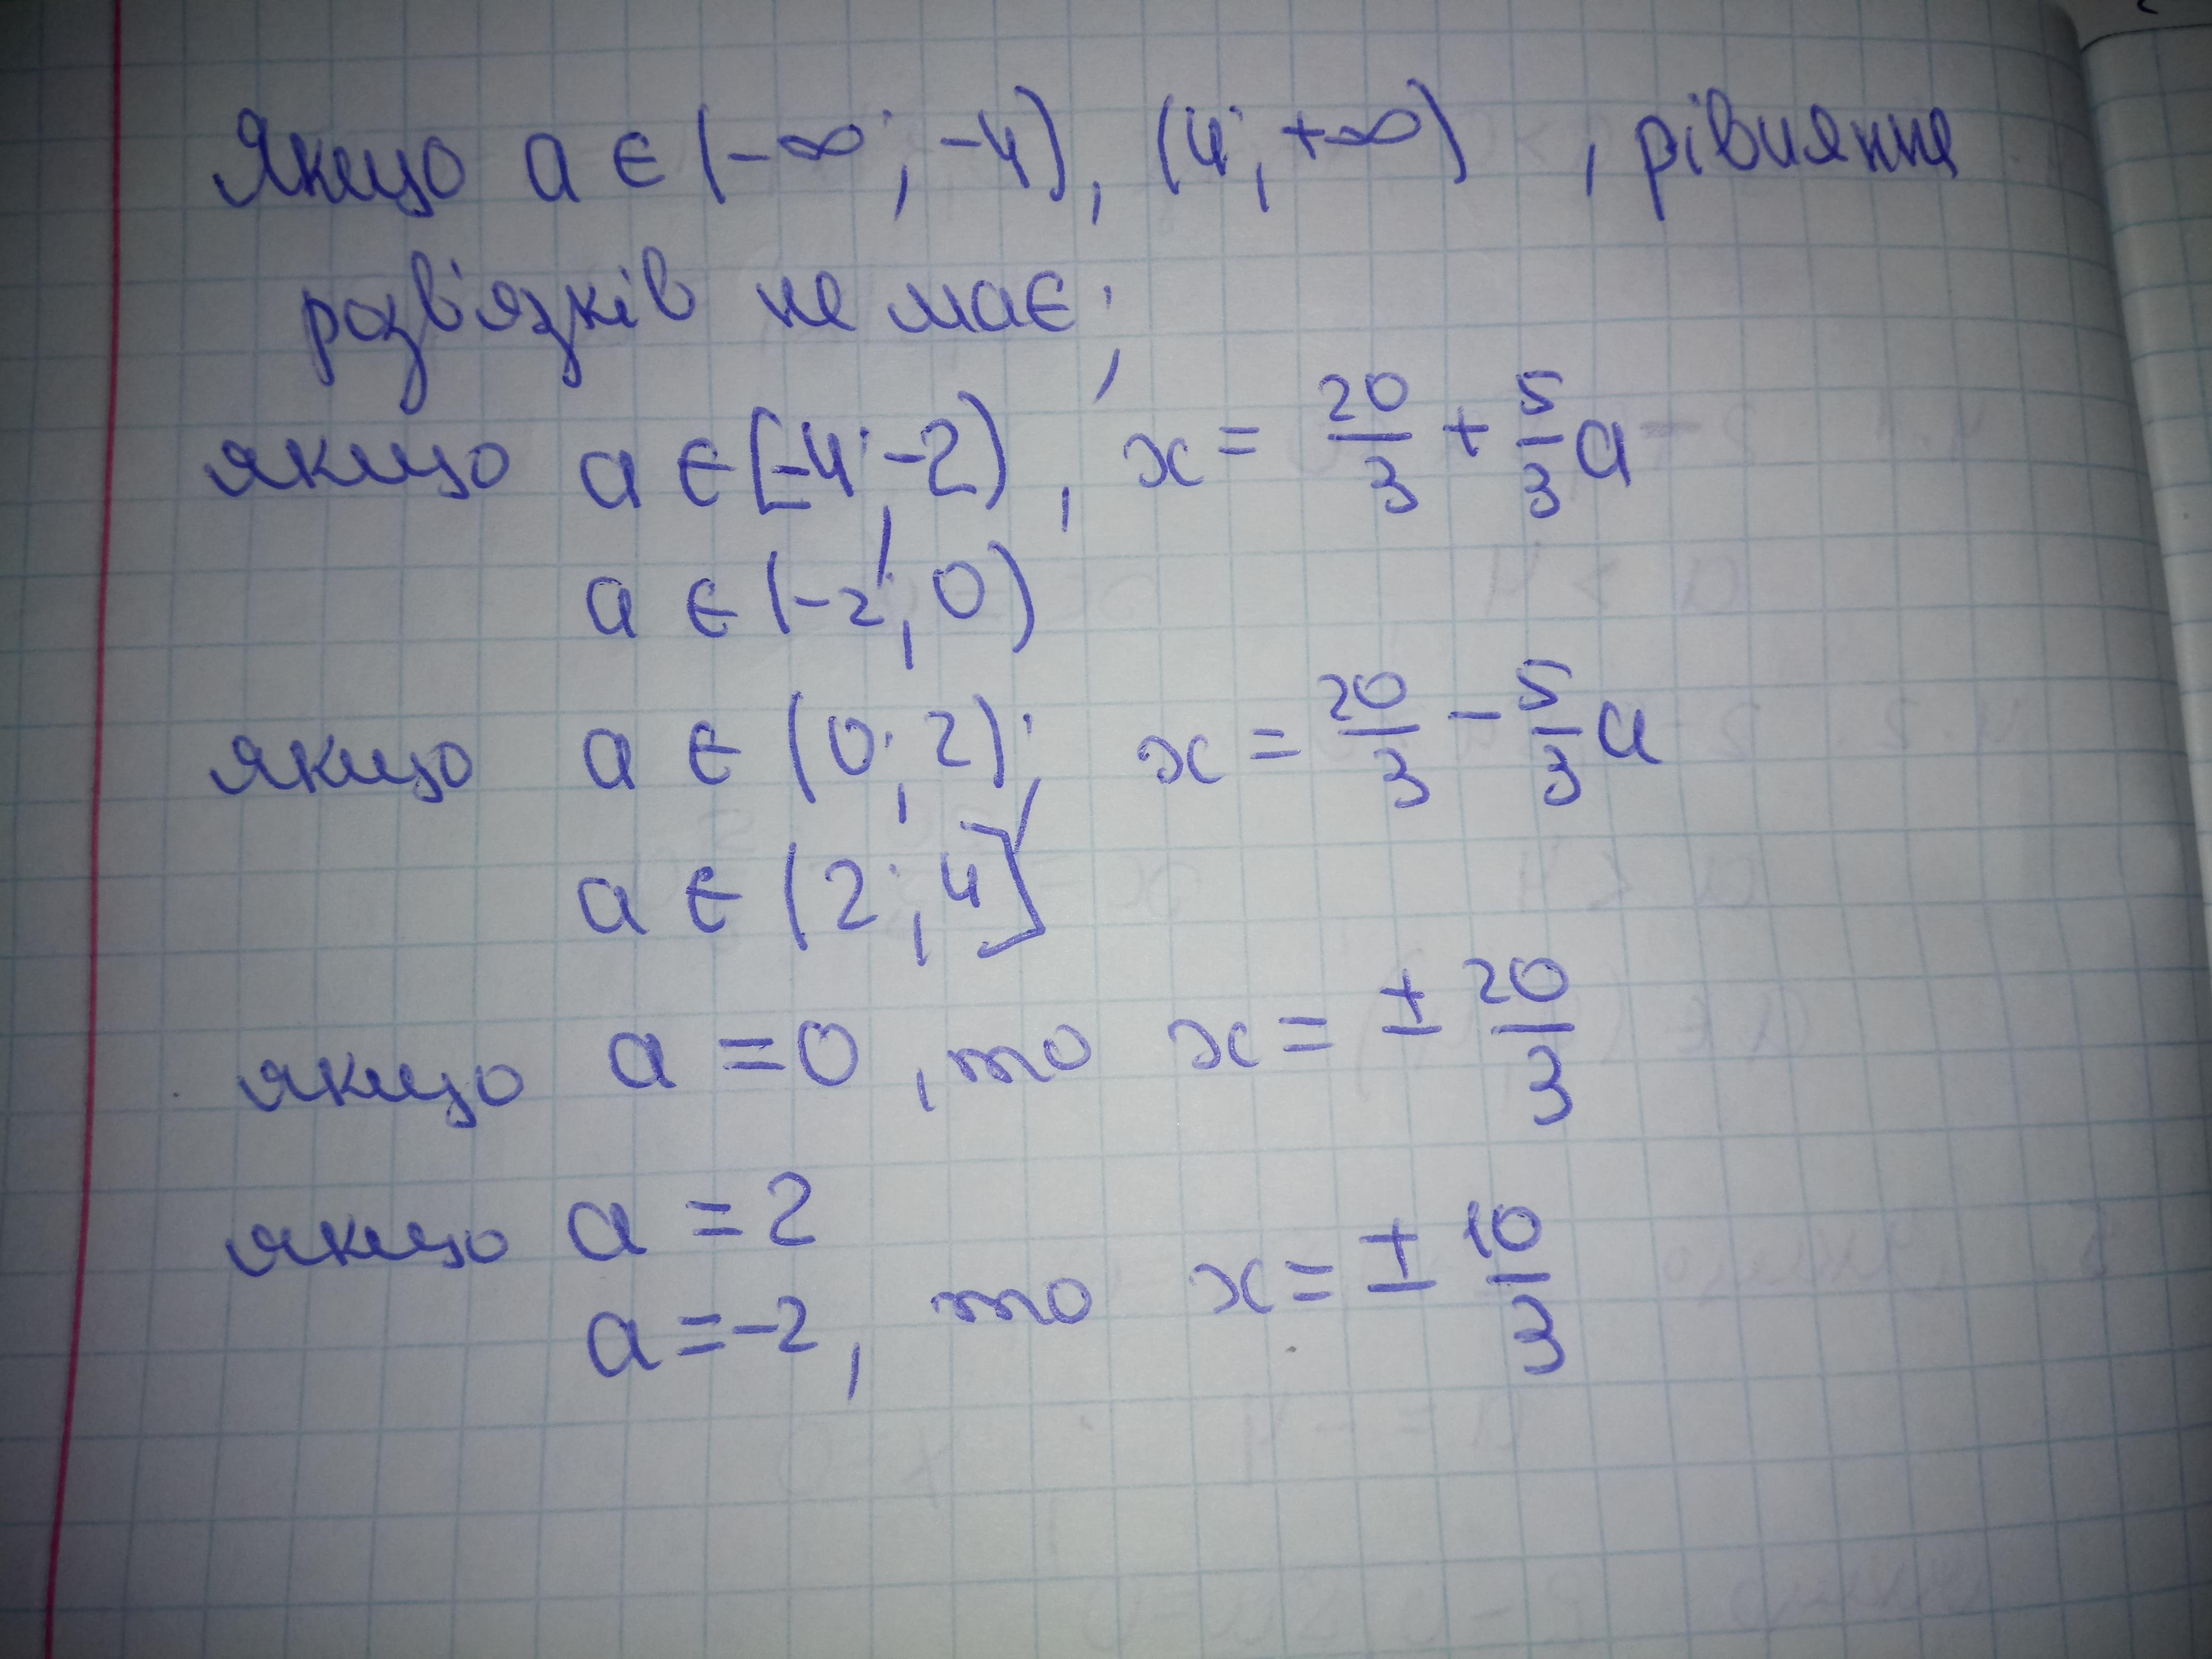 Якщо a ∈ (-∞; -4), (4; +∞) , рівняння
розв'язків не має;
якщо a ∈ [-4; -2) , x = 20/3 + 5/3 a
a ∈ (-2; 0)
якщо a ∈ (0; 2); x = 20/3 - 5/3 a
a ∈ (2; 4]
якщо a = 0 , то x = ± 20/3
якщо a = 2
a = -2, то x = ± 10/3